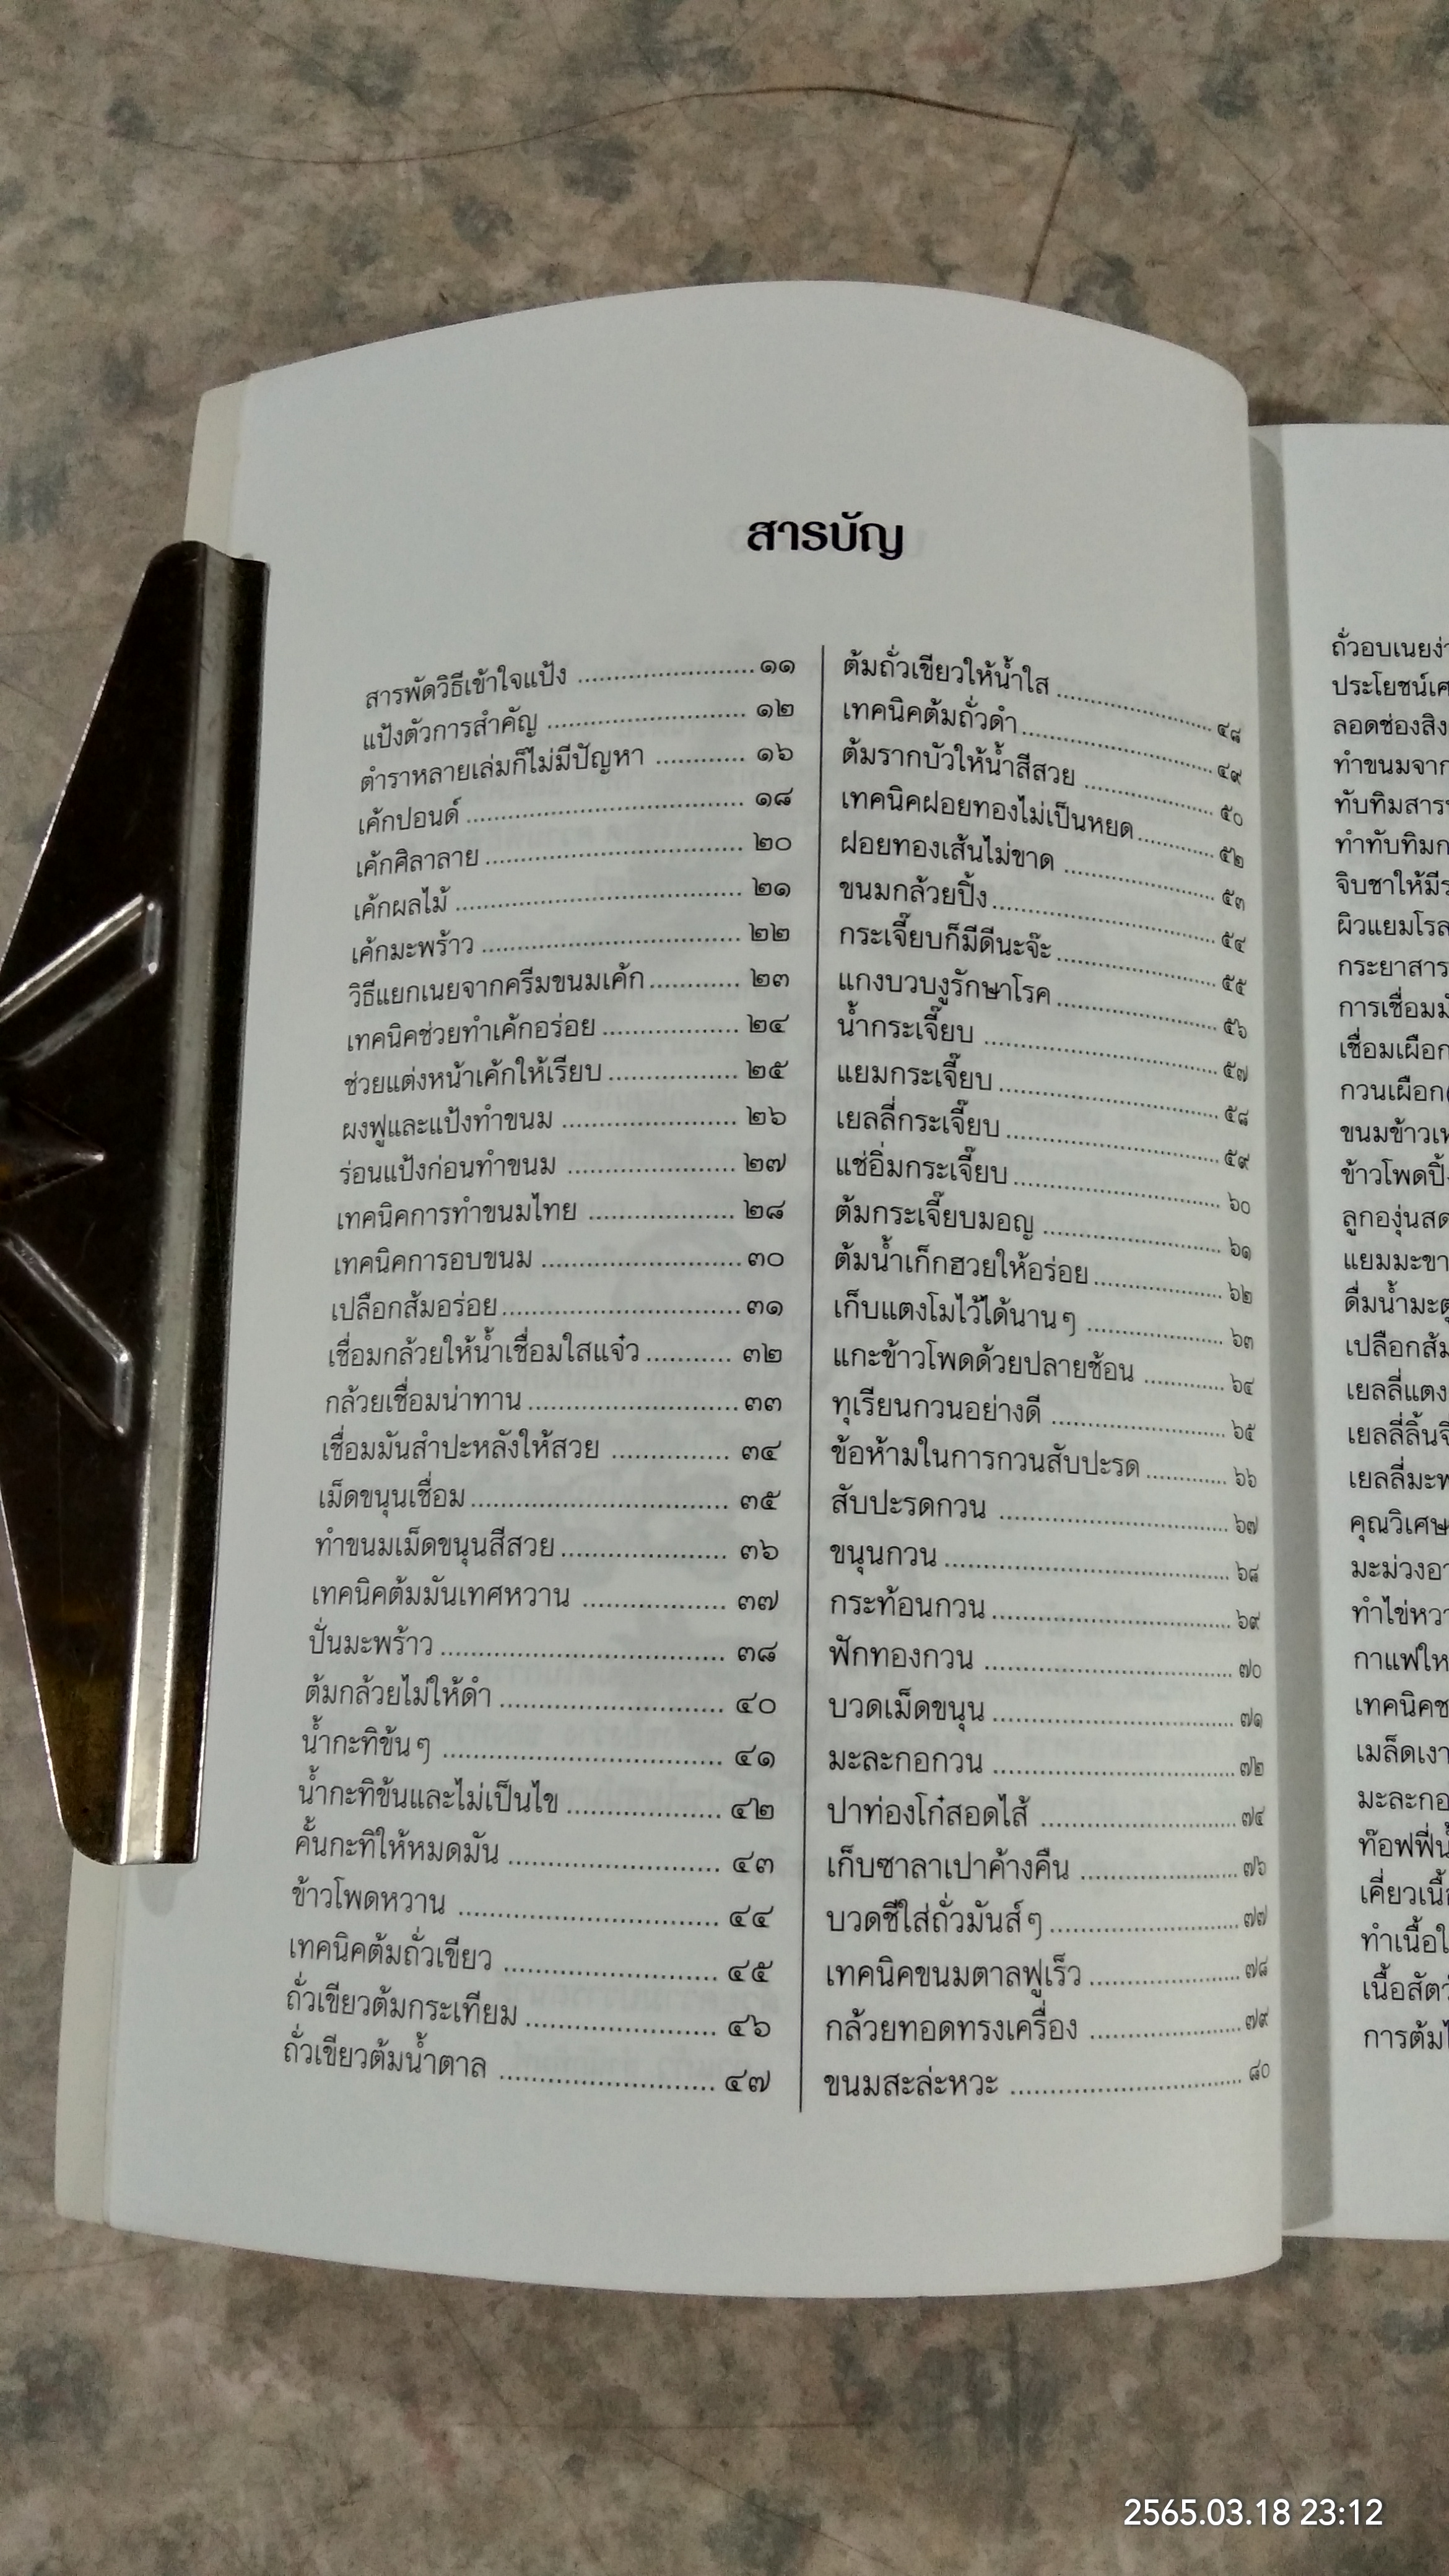 สารบัญ
สารพัดวิธีเข้าใจแป้ง ........................ ๑๑
แป้งตัวการสำคัญ ........................ ๑๒
ตำราหลายเล่มก็ไม่มีปัญหา ............ ๑๖
เค้กปอนด์ ........................ ๑๘
เค้กศิลาลาย ........................ ๒๐
เค้กผลไม้ ........................ ๒๑
เค้กมะพร้าว ........................ ๒๒
วิธีแยกเนยจากครีมขนมเค้ก ............ ๒๓
เทคนิคช่วยทำเค้กอร่อย .................. ๒๔
ช่วยแต่งหน้าเค้กให้เรียบ .................. ๒๕
ผงฟูและแป้งทำขนม ........................ ๒๖
ร่อนแป้งก่อนทำขนม ........................ ๒๗
เทคนิคการทำขนมไทย .................... ๒๘
เทคนิคการอบขนม ........................ ๓๐
เปลือกส้มอร่อย ........................ ๓๑
เชื่อมกล้วยให้น้ำเชื่อมใสแจ๋ว ............ ๓๒
กล้วยเชื่อมน่าทาน ........................ ๓๓
เชื่อมมันสำปะหลังให้สวย ................ ๓๔
เม็ดขนุนเชื่อม ........................ ๓๕
ทำขนมเม็ดขนุนสีสวย .................... ๓๖
เทคนิคต้มมันเทศหวาน .................. ๓๗
ปั่นมะพร้าว ........................ ๓๘
ต้มกล้วยไม่ให้ดำ ........................ ๔๐
น้ำกะทิข้นๆ ........................ ๔๑
น้ำกะทิข้นและไม่เป็นไข .................... ๔๒
คั้นกะทิให้หมดมัน ........................ ๔๓
ข้าวโพดหวาน ........................ ๔๔
เทคนิคต้มถั่วเขียว ........................ ๔๕
ถั่วเขียวต้มกระเทียม ........................ ๔๖
ถั่วเขียวต้มน้ำตาล ........................ ๔๗
ต้มถั่วเขียวให้น้ำใส ........................ ๔๘
เทคนิคต้มถั่วดำ ........................ ๔๙
ต้มรากบัวให้น้ำสีสวย .................... ๕๐
เทคนิคฝอยทองไม่เป็นหยด ............ ๕๒
ฝอยทองเส้นไม่ขาด ........................ ๕๓
ขนมกล้วยปิ้ง ........................ ๕๔
กระเจี๊ยบก็มีดีนะจ๊ะ ........................ ๕๕
แกงบวบงูรักษาโรค ........................ ๕๖
น้ำกระเจี๊ยบ ........................ ๕๗
แยมกระเจี๊ยบ ........................ ๕๘
เยลลี่กระเจี๊ยบ ........................ ๕๙
แช่อิ่มกระเจี๊ยบ ........................ ๖๐
ต้มกระเจี๊ยบมอญ ........................ ๖๑
ต้มน้ำเก็กฮวยให้อร่อย .................... ๖๒
เก็บแตงโมไว้ได้นานๆ .................... ๖๓
แกะข้าวโพดด้วยปลายช้อน ............ ๖๔
ทุเรียนกวนอย่างดี ........................ ๖๕
ข้อห้ามในการกวนสับปะรด ............ ๖๖
สับปะรดกวน ........................ ๖๗
ขนุนกวน ........................ ๖๘
กระท้อนกวน ........................ ๖๙
ฟักทองกวน ........................ ๗๐
บวดเม็ดขนุน ........................ ๗๑
มะละกอกวน ........................ ๗๒
ปาท่องโก๋สอดไส้ ........................ ๗๔
เก็บซาลาเปาค้างคืน ........................ ๗๖
บวดชีใส่ถั่วมันส์ๆ ........................ ๗๗
เทคนิคขนมตาลฟูเร็ว .................... ๗๘
กล้วยทอดทรงเครื่อง .................... ๗๙
ขนมสะล่ะหวะ ........................ ๘๐
ถั่วอบเนยง่า
ประโยชน์เศ
ลอดช่องสิง
ทำขนมจาก
ทับทิมสาร
ทำทับทิมก
จิบชาให้มีร
ผิวแยมโรล
กระยาสาร
การเชื่อมมั
เชื่อมเผือก
กวนเผือก
ขนมข้าวเ
ข้าวโพดปิ้
ลูกองุ่นสด
แยมมะขา
ดื่มน้ำมะตู
เปลือกส้ม
เยลลี่แตง
เยลลี่ลิ้นจี
เยลลี่มะพ
คุณวิเศษ
มะม่วงอ
ทำไข่หวา
กาแฟให
เทคนิคช
เมล็ดเงา
มะละกอ
ท๊อฟฟี่น้
เคี่ยวเนื้
ทำเนื้อใ
เนื้อสัตว์
การต้มไ
2565.03.18 23:12